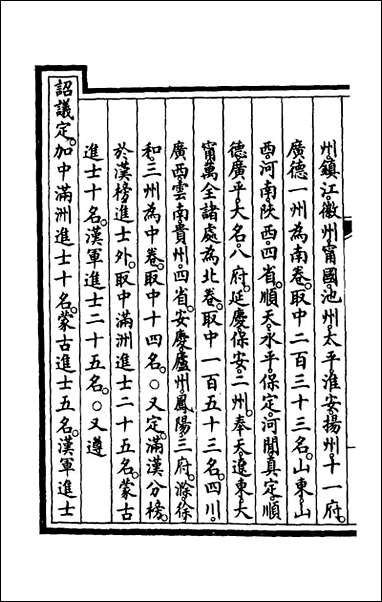 州鎮江徽州甯國池州太平淮安揚州十一府。
廣德一州為南卷。取中二百三十三名。山東山
西河南陜西四省。順天永平保定河間真定順
德廣平大名八府。延慶保安二州。奉天遼東大
甯萬全諸處為北卷。取中一百五十三名。四川
廣西雲南貴州四省。安慶廬州鳳陽三府。滁徐
和三州為中卷。取中十四名。○又定滿漢分榜。
於漢榜進士外。取中滿洲進士二十五名。蒙古
進士十名。漢軍進士二十五名。○又遵
詔議定。加中滿洲進士十名。蒙古進士五名。漢軍進士